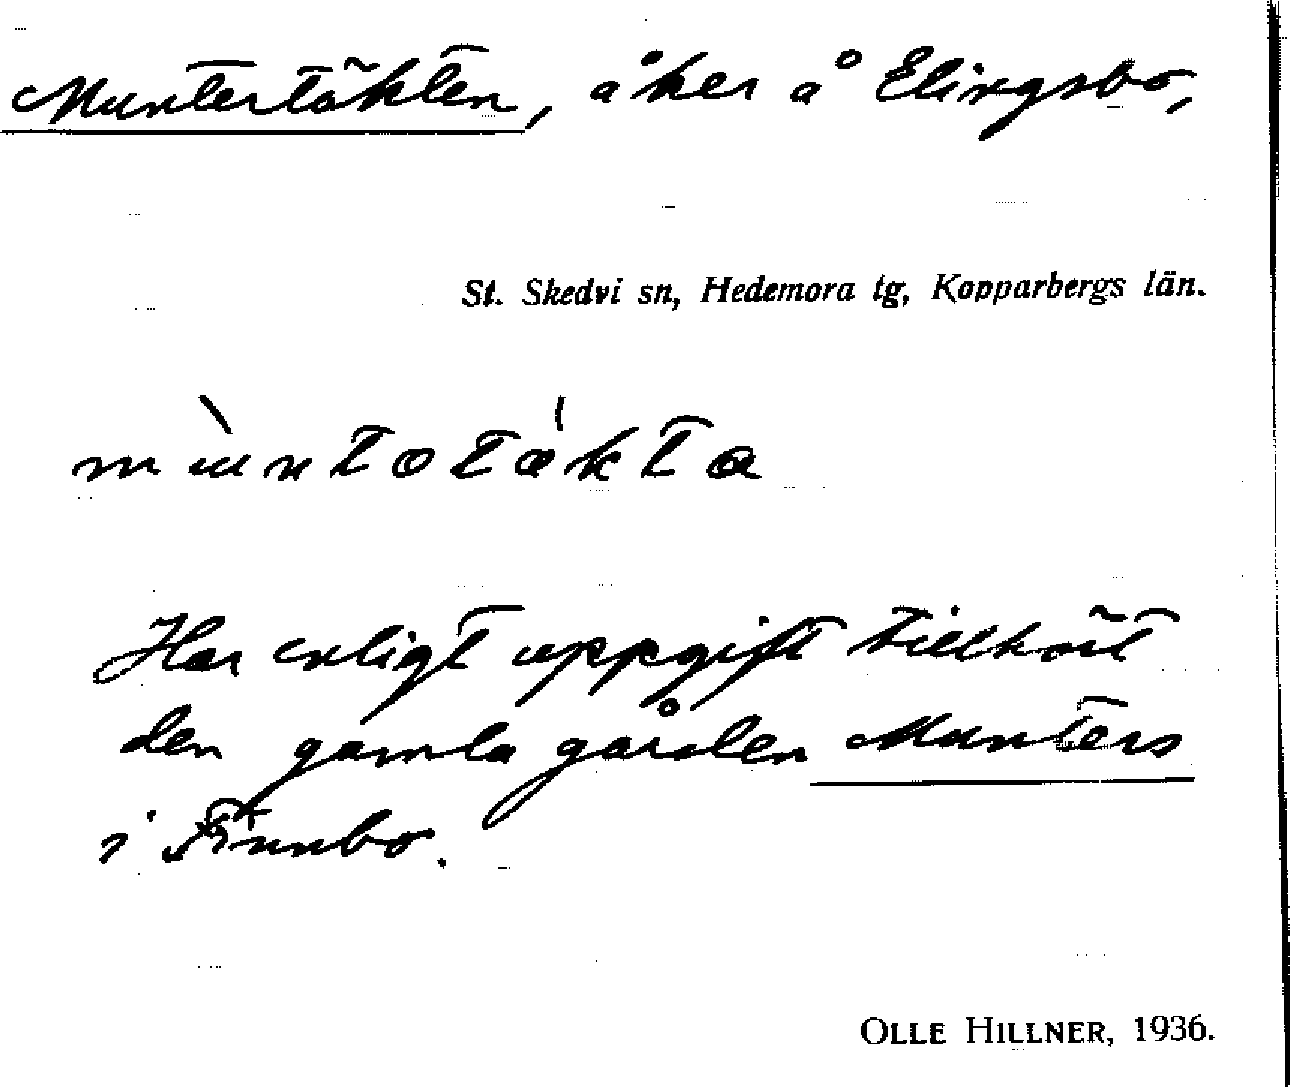 Muntertäkten, åker å Elingsbo,
St. Skedvi sn, Hedemora tg, Kopparbergs län.
Har enligt uppgift tillhört
den gamla gården Munters
i Finnbo.
OLLE HILLNER, 1936.